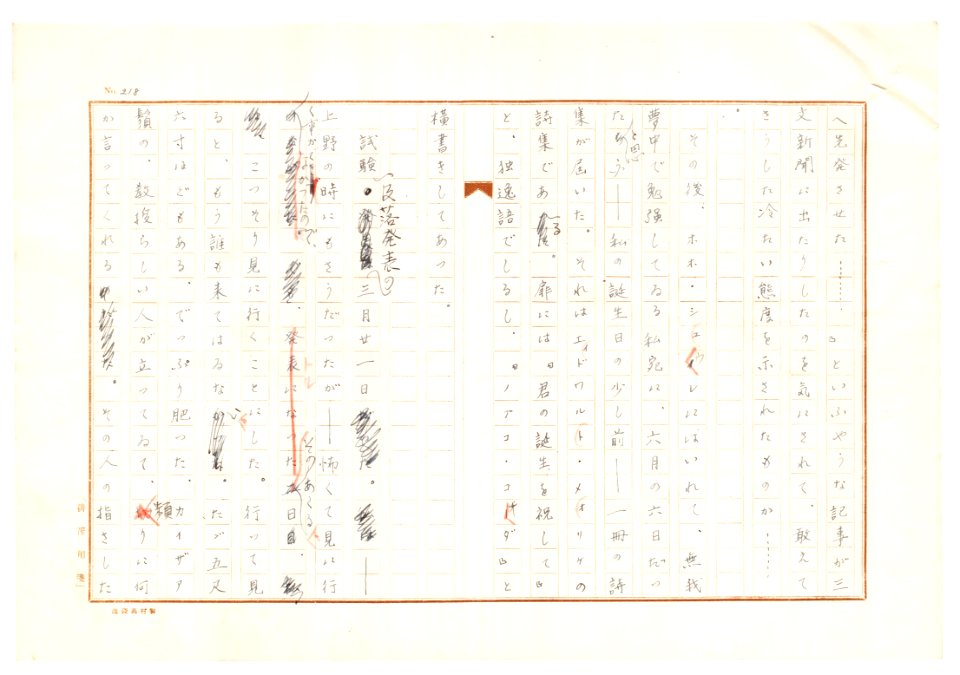 No. 218
へ先発させた………。』といふやうな記事が三
文新聞に出たりしたのを気にされて、敢えて
さうした冷たい態度を示されたものか………
。
その後、ホホ・シューレにはいれて、無我
夢中で勉強してゐる私宛に、六月の六日だつ
たと思ふ――私の誕生日の少し前――一冊の詩
集が届いた。それはエドワルト・メォリケの
詩集である。扉には『君の誕生を祝して』
と、独逸語でしるし、『ノアコ・コダ』と
横書きしてあつた。
試験。(及落発表の)三月廿一日――
上野の時にもさうだつたが――怖くて見に行
く筆がなかつたので、発表になつたそのあくる日、
こつそり見に行くことにした。行つて見
ると、もう誰も来てはゐない。だが五尺
六寸ほどもある、でつぷり肥つた、カイザア
鬚の、教授らしい人が立つてゐて、頻りに何
か言つてくれる。その人の指さした